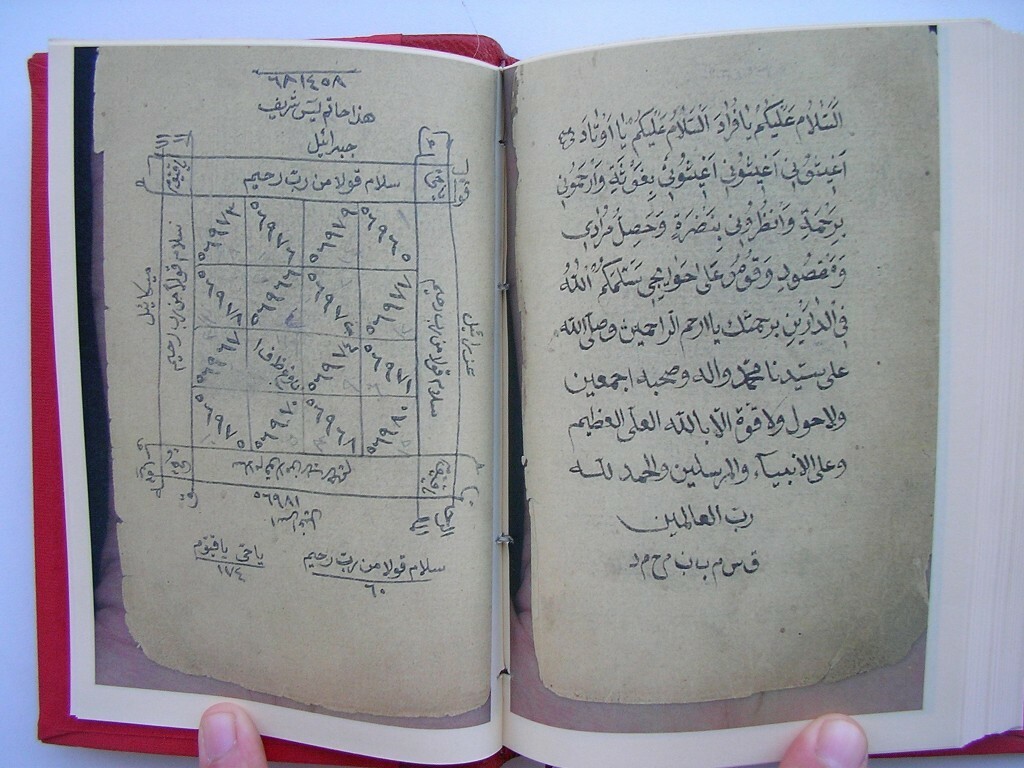 السلام عليكم يا افراد السلام عليكم يا اوتاد
اغيثوني اغيثوني اغيثوني بغوثة وارحموني
برحمة وانظروني بنضرة وحصل مرادي
ومقصود وقوموا على حوايجي سلمكم الله
في الدارين برحمتك يا ارحم الراحمين وصلى الله
على سيدنا محمد واله وصحبه اجمعين
ولا حول ولا قوة الا بالله العلي العظيم
وعلى الانبياء والمرسلين والحمد لله
رب العالمين
ق س م ب ب ن م ح م د
٦٨١٤٥٨
هذا خاتم يس شريف
جبرائيل
سلام قولا من رب رحيم
٥٦٩٧٣ ٥٦٩٧٦ ٥٦٩٧٩ ٥٦٩٦٥
٥٦٩٧٨ ٥٦٩٦٦ ٥٦٩٧٢
٥٦٩٦٧ ٥٦٩٧١
٥٦٩٧٥ ٥٦٩٧٠ ٥٦٩٦٨ ٥٦٩٨٠
سلام قولا من رب رحيم
ميكائيل
سلام قولا من رب رحيم
عزرائيل
سلام قولا من رب رحيم
٦٠
يا حي يا قيوم
١٧٤